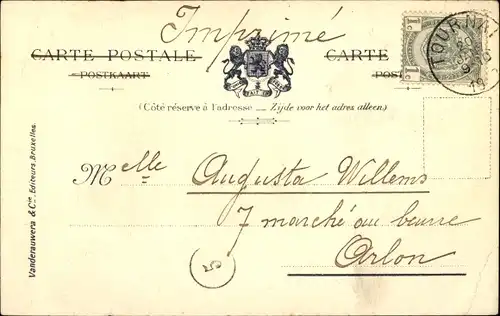 Imprimé
CARTE POSTALE CARTE
POSTKAART
1c 1c
TOURNAI
(Côté réservé à l'adresse — Zijde voor het adres alleen.)
Melle Augusta Willems
7 marché au beurre
Arlon
5
Vanderauwera & Cie, Editeurs, Bruxelles.